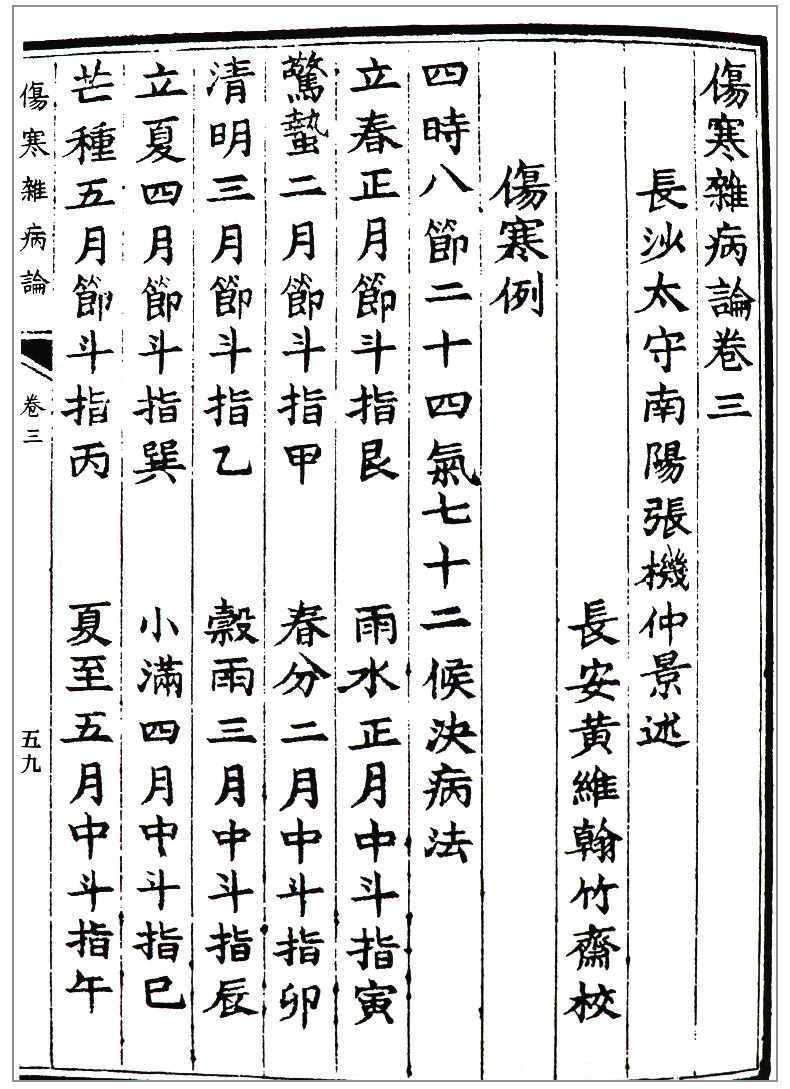 傷寒雜病論卷三
長沙太守南陽張機仲景述
長安黃維翰竹齋校
傷寒例
四時八節二十四氣七十二候決病法
立春正月節斗指艮　雨水正月中斗指寅
驚蟄二月節斗指甲　春分二月中斗指卯
清明三月節斗指乙　穀雨三月中斗指辰
立夏四月節斗指巽　小滿四月中斗指巳
芒種五月節斗指丙　夏至五月中斗指午
傷寒雜病論　卷三　五九